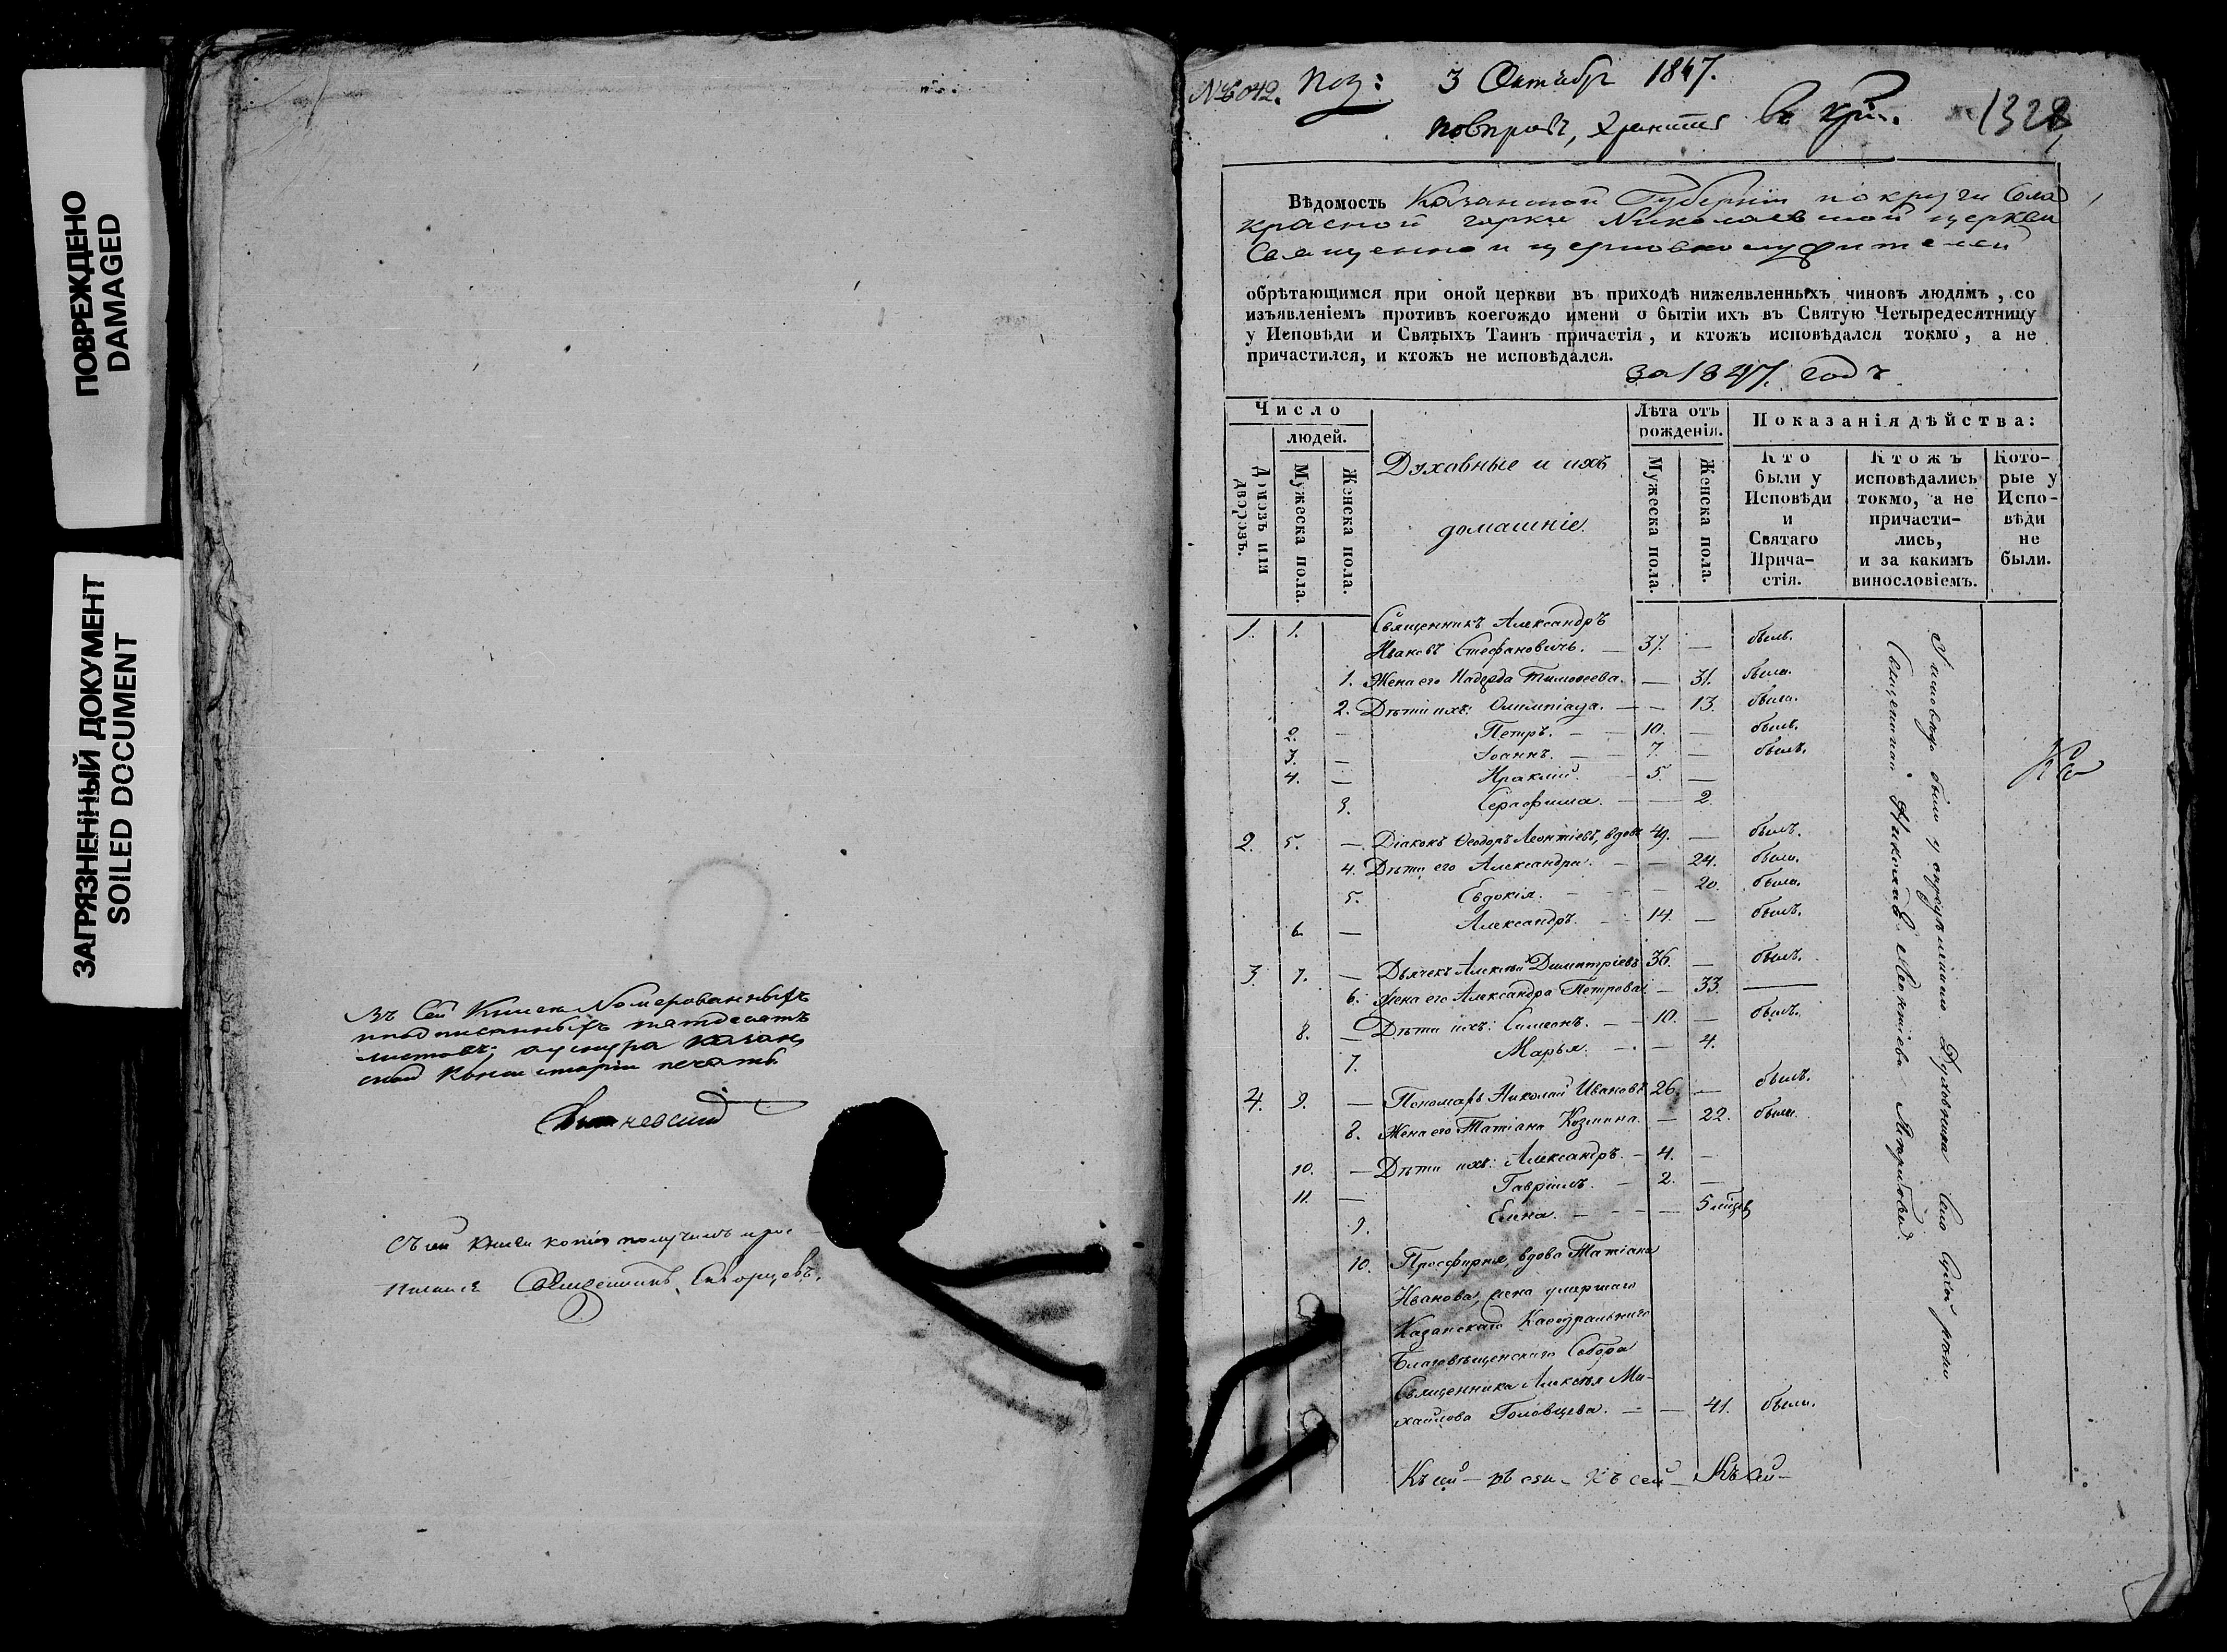 ПОВРЕЖДЕНО
DAMAGED
ЗАГРЯЗНЕННЫЙ ДОКУМЕНТ
SOILED DOCUMENT
Въ сей книги Номерованныхъ
листовъ,
печать
Съ сей книги копію получилъ и рос
писался Священникъ Скворцовъ.
№ 6042. Пол: 3 Октября 1847.
хранить въ
1328
Вѣдомость Казанской Губерніи по округи Села
красной горки Николаевской церкви
Священно и церковнослужителей
обрѣтающимся при оной церкви въ приходѣ нижеявленныхъ чиновъ людямъ, со
изъявленіемъ противъ коегождо имени о бытіи ихъ въ Святую Четыредесятницу
у Исповѣди и Святыхъ Таинъ причастія, и ктожъ исповѣдался токмо, а не
причастился, и ктожъ не исповѣдался.
за 1847. годъ
Число
людей.
Домовъ или дворовъ.
Мужеска пола.
Женска пола.
Духовные и ихъ
домашніе.
Лѣта отъ
рожденія.
Мужеска пола.
Женска пола.
Показанія дѣйства:
Кто
были у
Исповѣди
и
Святаго
Прича-
стія.
Ктожъ
исповѣдались
токмо, а не
причасти-
лись,
и за какимъ
винословіемъ.
Кото-
рые у
Испо-
вѣди
не
были.
1. 1. Священникъ Александръ
Ивановъ Стефановичъ. — 37. — былъ.
1. Жена его Надежда Тимоѳеева. — 31. была.
2. Дѣти ихъ: Олимпіада. — — 13. была.
2. — Петръ. — 10. — былъ.
3. — Іоаннъ. — 7. — былъ.
4. — Ираклій. — 5. —
3. Серафима. — — 2.
2. 5. — Діаконъ Ѳеодоръ Леонтіевъ, вдовъ 49. — былъ.
4. Дѣти его Александра. — — 24. была.
5. Евдокія. — — 20. была.
6. — Александръ. — 14. — былъ.
3. 7. — Дьячекъ Алексѣй Димитріевъ 36. — былъ.
6. Жена его Александра Петрова. — 33. —
8. — Дѣти ихъ: Симеонъ. — 10. — былъ.
7. Марья. — — 4.
4. 9. — Пономарь Николай Ивановъ 26. — былъ.
8. Жена его Татіана Козмина. — 22. была.
10. — Дѣти ихъ: Александръ. — 4. —
11. — Гавріилъ. — 2. —
9. Елена. — — 5 мѣсяц
10. Просфирня, вдова Татіана
Иванова, жена умершаго
Казанскаго Каѳедральнаго
Благовѣщенскаго Собора
Священника Алексѣя Ми-
хайлова Головцева. — — 41. была.
Къ сей — къ сей — къ сей — Къ сей —